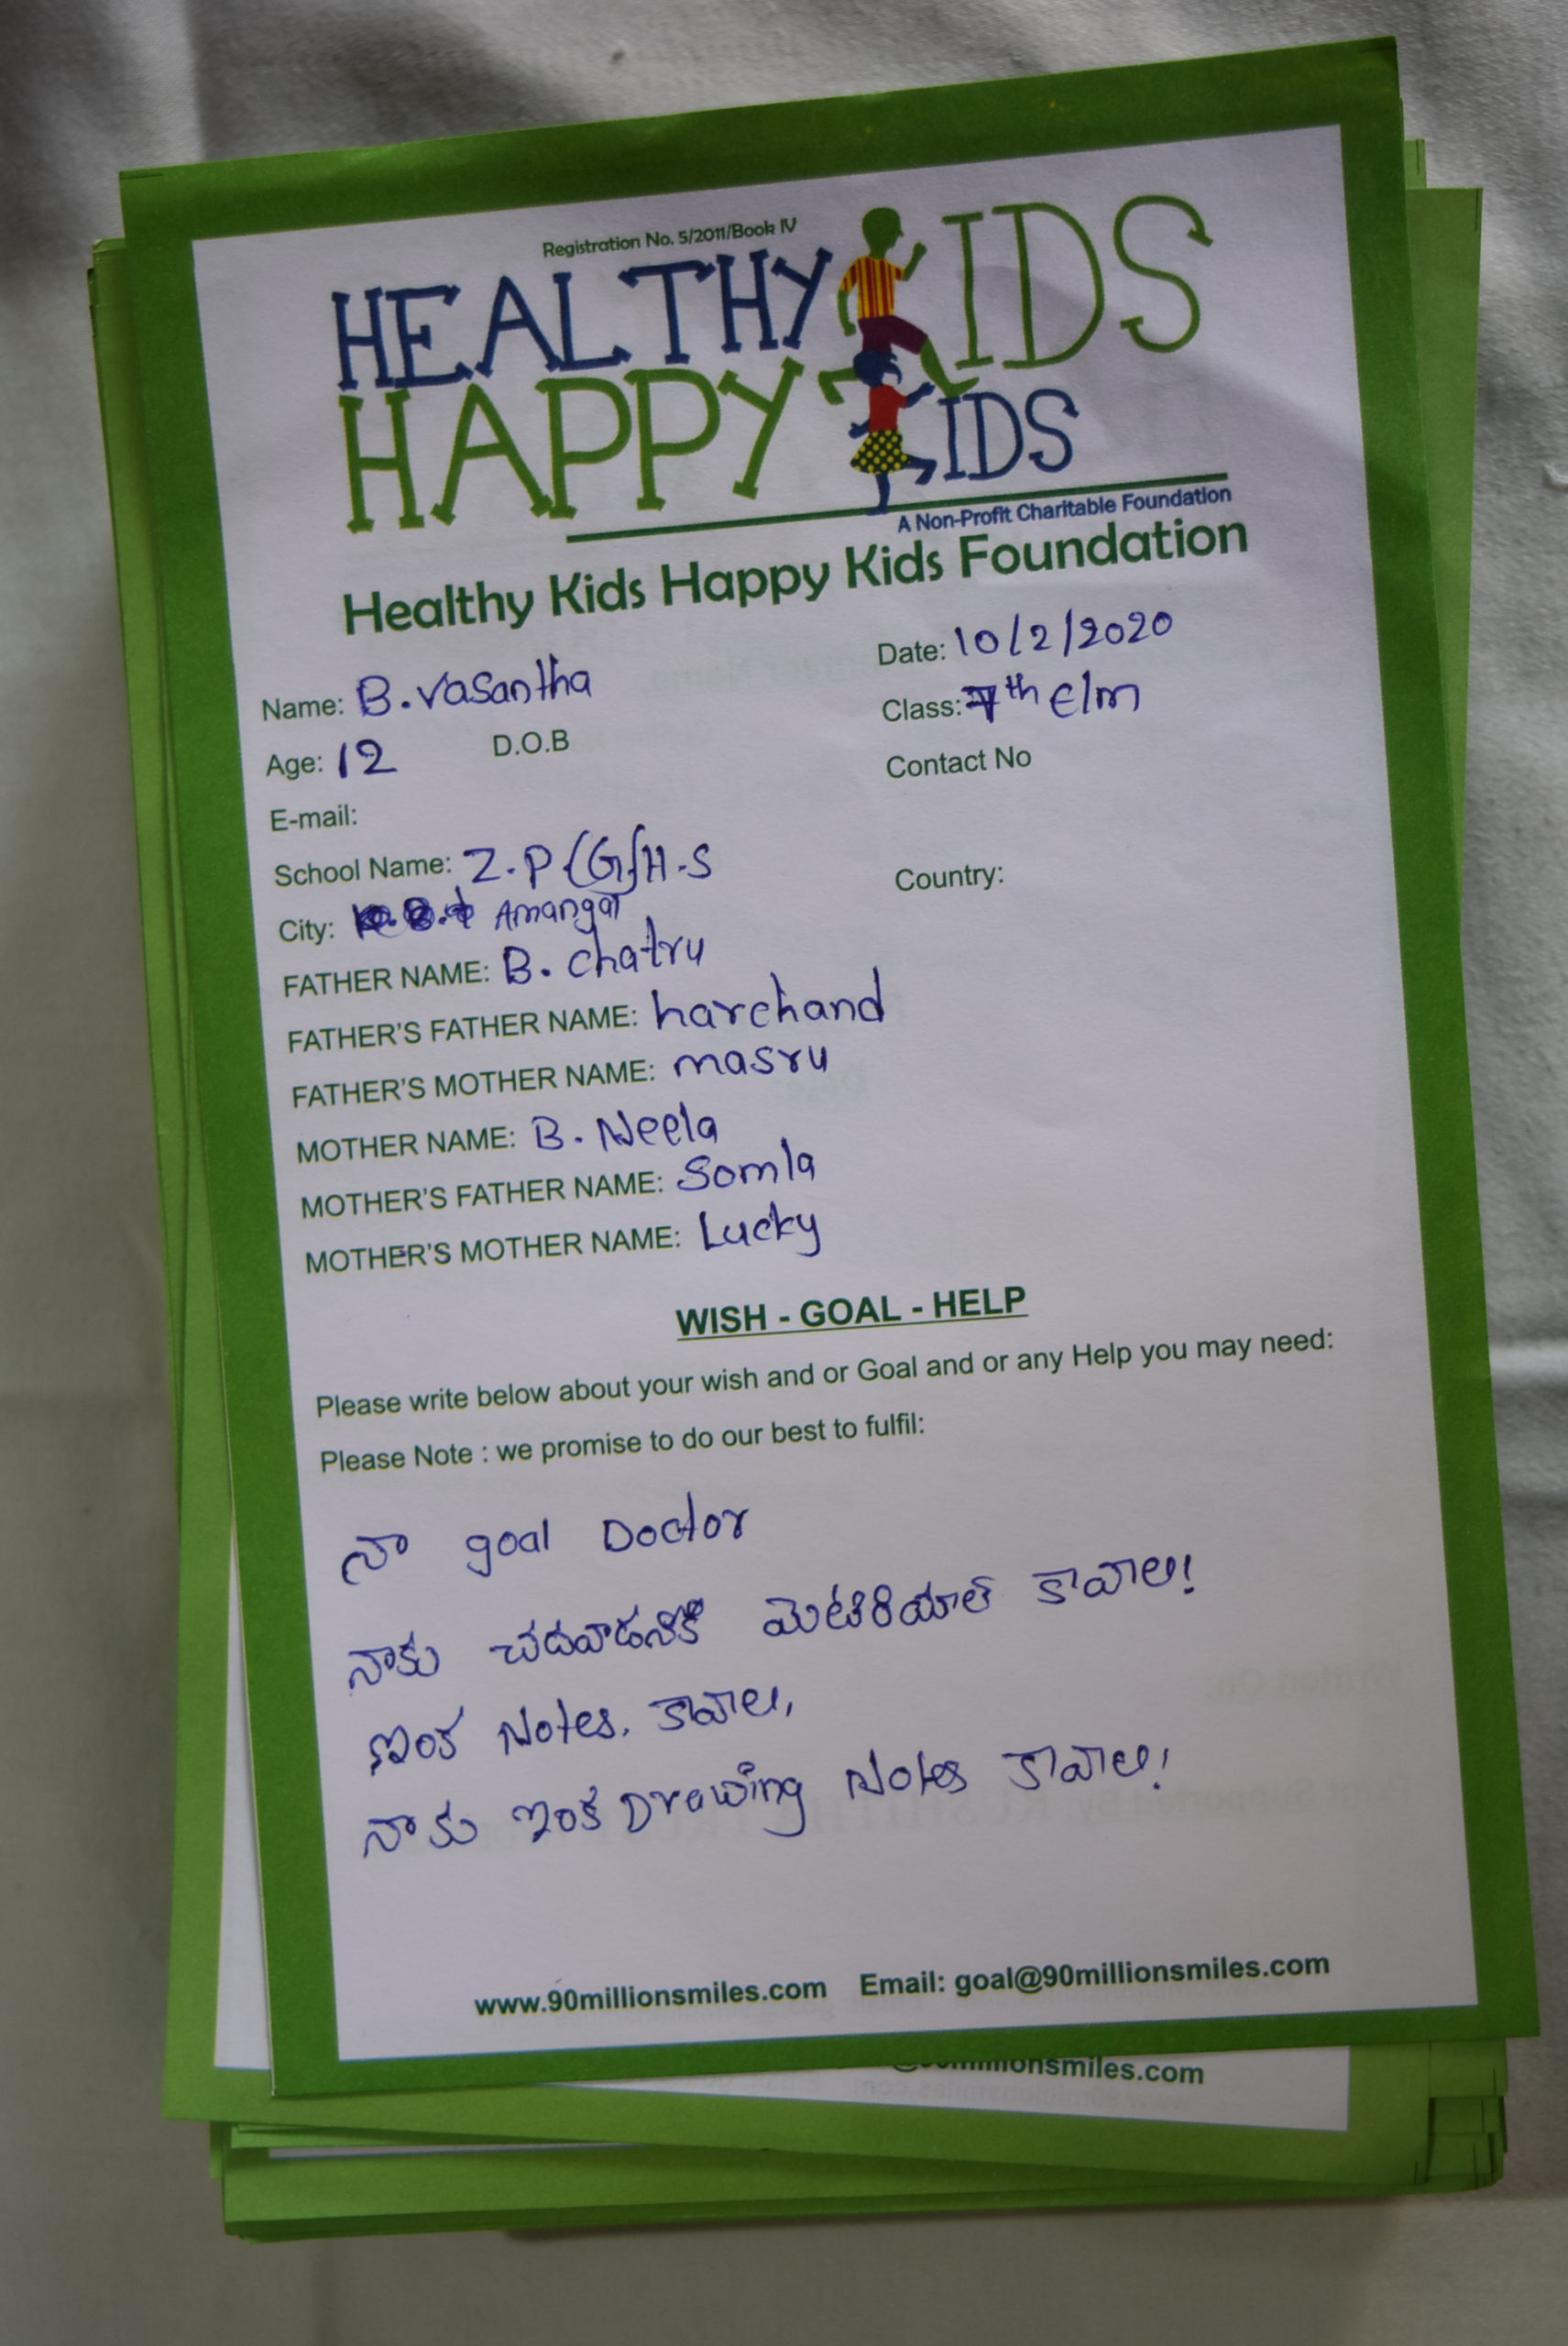 Registration No. 5/2011/Book IV
HEALTHY KIDS
HAPPY KIDS
A Non-Profit Charitable Foundation
Healthy Kids Happy Kids Foundation
Name: B. Vasantha Date: 10/2/2020
Class: 7th E/m
Age: 12 D.O.B
Contact No
E-mail:
School Name: Z.P(G)H.S
Country:
City: Amangal
FATHER NAME: B. chatru
FATHER'S FATHER NAME: harchand
FATHER'S MOTHER NAME: masru
MOTHER NAME: B. Neela
MOTHER'S FATHER NAME: Somla
MOTHER'S MOTHER NAME: Lucky
WISH - GOAL - HELP
Please write below about your wish and or Goal and or any Help you may need:
Please Note : we promise to do our best to fulfil:
నా goal Doctor
నాకు చదవాడనికి మెటిరియాల్ కావాలి!
ఇంక Notes. కావాలి,
నాకు ఇంక Drawing Notes కావాలి!
www.90millionsmiles.com Email: goal@90millionsmiles.com
onsmiles.com